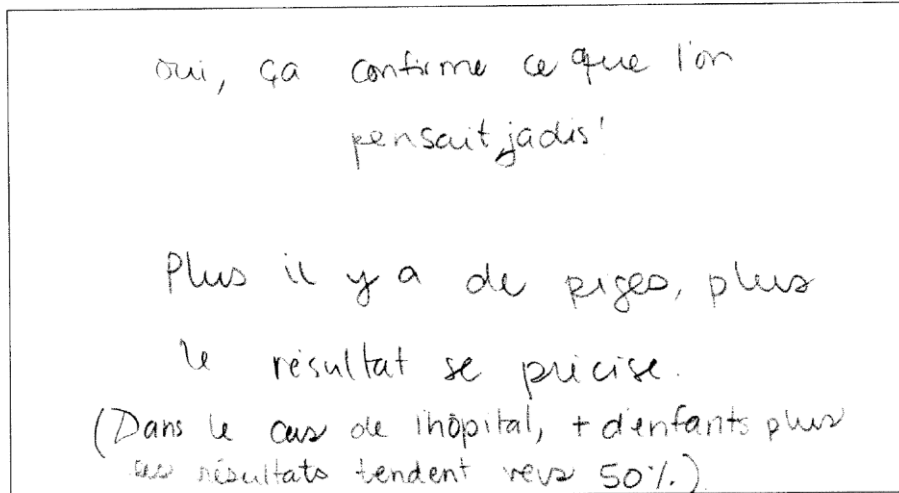 oui, ça confirme ce que l'on
pensait jadis!
Plus il y a de piges, plus
le résultat se précise.
(Dans le cas de l'hôpital, + d'enfants plus
les résultats tendent vers 50%.)